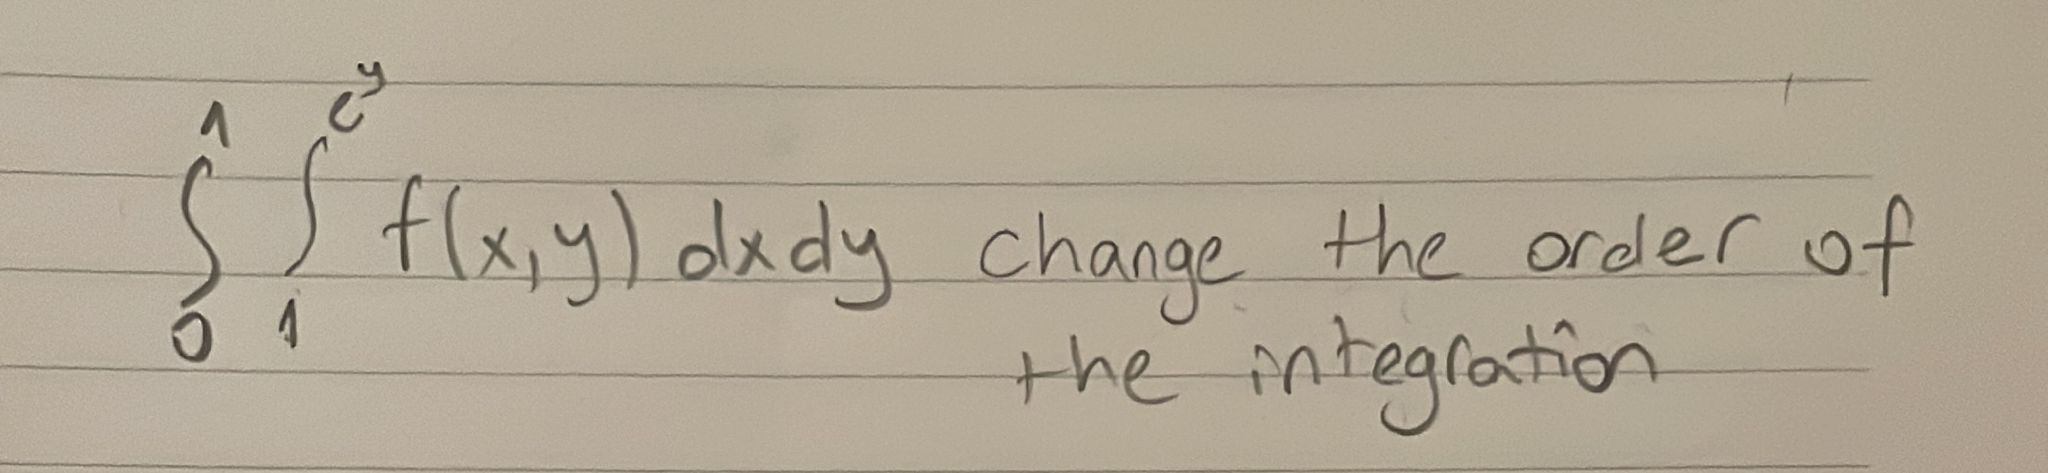 ∫₀¹ ∫₁^{e^y} f(x,y) dxdy change the order of
the integration